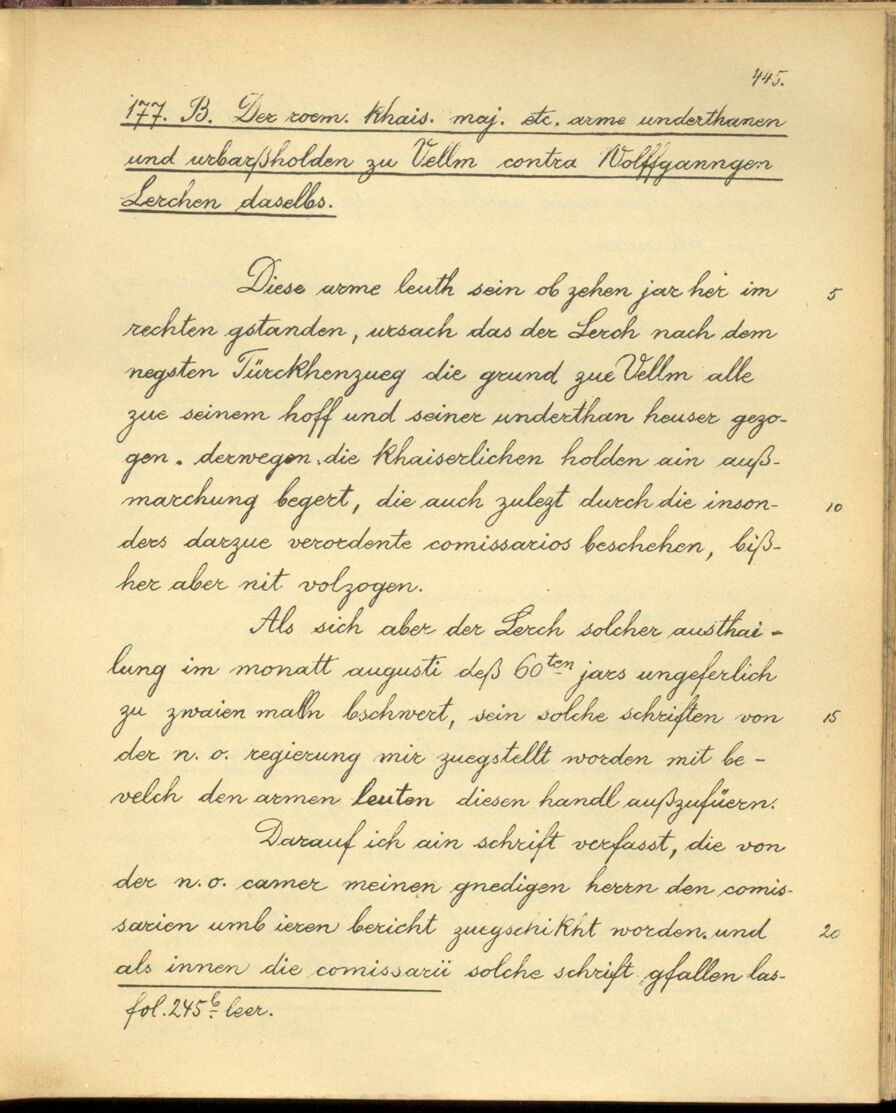 445.
177. B. Der roem. khais. maj. etc. arme underthanen
und urbarßholden zu Vellm contra Wolffganngen
Lerchen daselbs.
Diese arme leuth sein ob zehen jar her im
5
rechten gstanden, ursach das der Lerch nach dem
negsten Türckhenzueg die grund zue Vellm alle
zue seinem hoff und seiner underthan heuser gezo-
gen. derwegen die khaiserlichen holden ain auß-
marchung begert, die auch zulezt durch die inson-
10
ders darzue verordente comissarios beschehen, biß-
her aber nit volzogen.
Als sich aber der Lerch solcher austhai-
lung im monatt augusti deß 60ten jars ungeferlich
zu zwaien malln bschwert, sein solche schriften von
15
der n. o. regierung mir zuegstellt worden mit be-
velch den armen leuten diesen handl außzufüern.
Darauf ich ain schrift verfasst, die von
der n. o. camer meinen gnedigen herrn den comis-
sarien umb ieren bericht zuegschikht worden. und
20
als innen die comissarii solche schrift gfallen las-
fol. 245b leer.